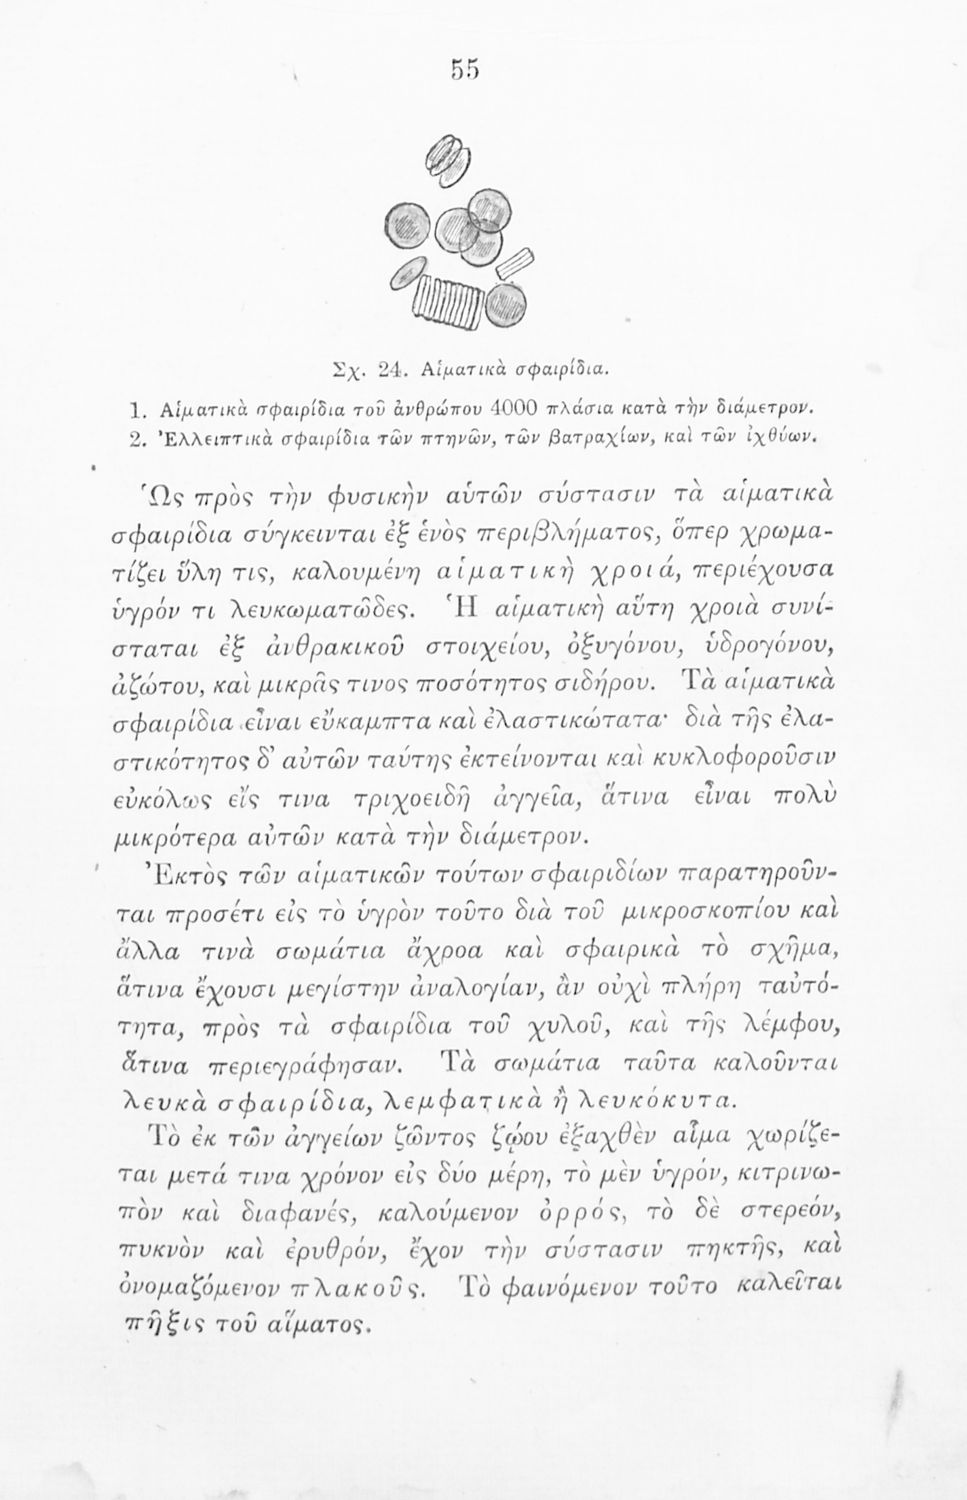 55
Σχ. 24. Αἱματικὰ σφαιρίδια.
1. Αἱματικὰ σφαιρίδια τοῦ ἀνθρώπου 4000 πλάσια κατὰ τὴν διάμετρον.
2. Ἐλλειπτικὰ σφαιρίδια τῶν πτηνῶν, τῶν βατραχίων, καὶ τῶν ἰχθύων.
Ὡς πρὸς τὴν φυσικὴν αὐτῶν σύστασιν τὰ αἱματικὰ
σφαιρίδια σύγκεινται ἐξ ἑνὸς περιβλήματος, ὅπερ χρωμα-
τίζει ὕλη τις, καλουμένη αἱματικὴ χροιά, περιέχουσα
ὑγρόν τι λευκωματῶδες. Ἡ αἱματικὴ αὕτη χροιὰ συνί-
σταται ἐξ ἀνθρακικοῦ στοιχείου, ὀξυγόνου, ὑδρογόνου,
ἀζώτου, καὶ μικρᾶς τινος ποσότητος σιδήρου. Τὰ αἱματικὰ
σφαιρίδια εἶναι εὔκαμπτα καὶ ἐλαστικώτατα· διὰ τῆς ἐλα-
στικότητος δ' αὐτῶν ταύτης ἐκτείνονται καὶ κυκλοφοροῦσιν
εὐκόλως εἴς τινα τριχοειδῆ ἀγγεῖα, ἅτινα εἶναι πολὺ
μικρότερα αὐτῶν κατὰ τὴν διάμετρον.
Ἐκτὸς τῶν αἱματικῶν τούτων σφαιριδίων παρατηροῦν-
ται προσέτι εἰς τὸ ὑγρὸν τοῦτο διὰ τοῦ μικροσκοπίου καὶ
ἄλλα τινὰ σωμάτια ἄχροα καὶ σφαιρικὰ τὸ σχῆμα,
ἅτινα ἔχουσι μεγίστην ἀναλογίαν, ἂν οὐχὶ πλήρη ταὐτό-
τητα, πρὸς τὰ σφαιρίδια τοῦ χυλοῦ, καὶ τῆς λέμφου,
ἅτινα περιεγράφησαν. Τὰ σωμάτια ταῦτα καλοῦνται
λευκὰ σφαιρίδια, λεμφατικὰ ἢ λευκόκυτα.
Τὸ ἐκ τῶν ἀγγείων ζῶντος ζῴου ἐξαχθὲν αἷμα χωρίζε-
ται μετά τινα χρόνον εἰς δύο μέρη, τὸ μὲν ὑγρόν, κιτρινω-
πὸν καὶ διαφανές, καλούμενον ὀρρός, τὸ δὲ στερεόν,
πυκνὸν καὶ ἐρυθρόν, ἔχον τὴν σύστασιν πηκτῆς, καὶ
ὀνομαζόμενον πλακοῦς. Τὸ φαινόμενον τοῦτο καλεῖται
πῆξις τοῦ αἵματος.